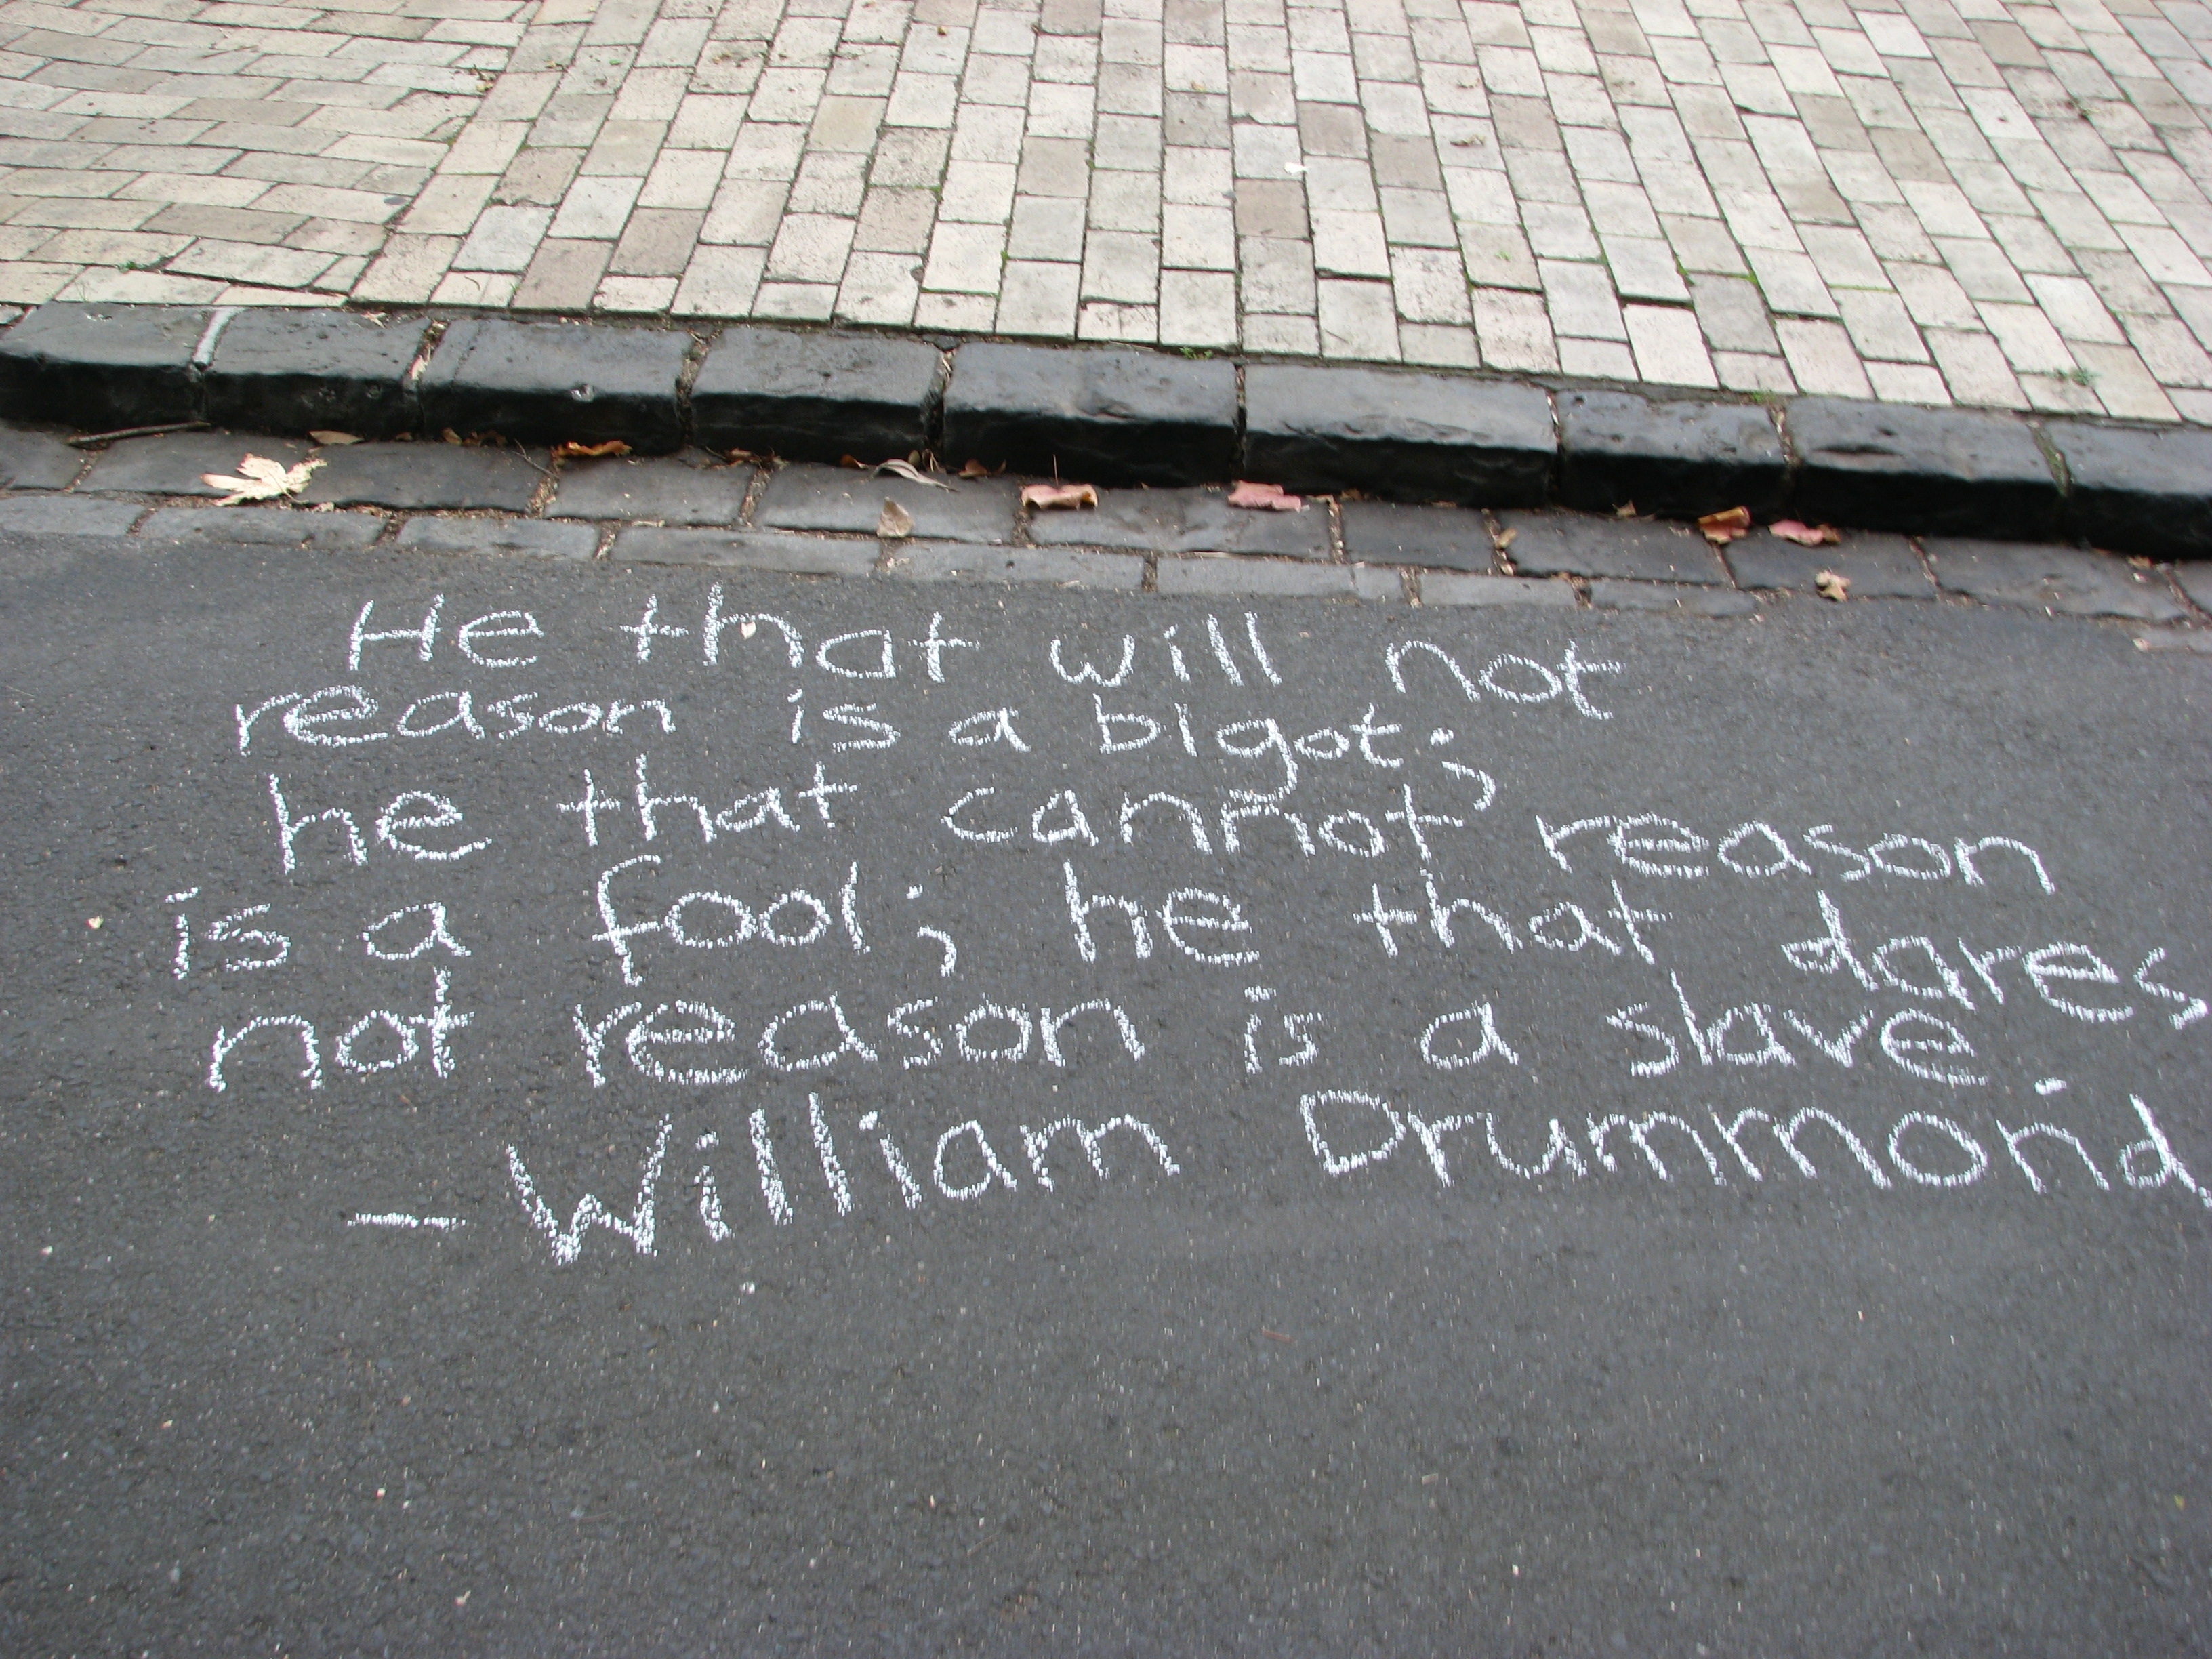 He that will not
reason is a bigot;
he that cannot reason
is a fool; he that dares
not reason is a slave.
– William Drummond